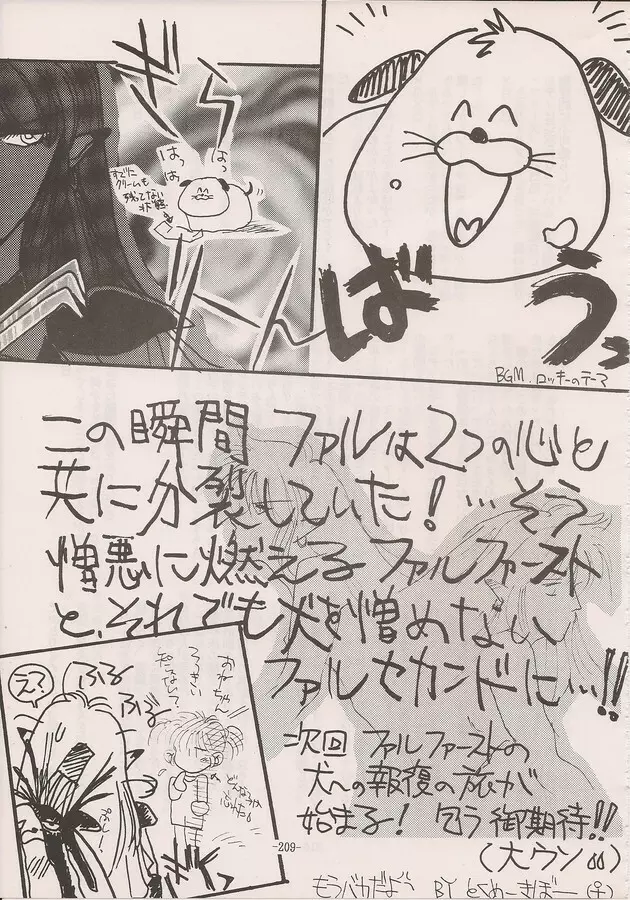 ばっ
BGM.ロッキーのテーマ
はっ
はっ
すでに
クリームも
残ってない
状態
この瞬間 ファルは2つの心と
共に分裂していた!…そう
憎悪に燃えるファルファースト
と、それでも犬を憎めない
ファルセカンドに…!!
次回 ファルファーストの
犬への報復の旅が
始まる! 乞う御期待!!
(大ウソ)
え?
ふる
ふる
おれちゃん
うるさい
知らない
もうバカだよう BY
-209-